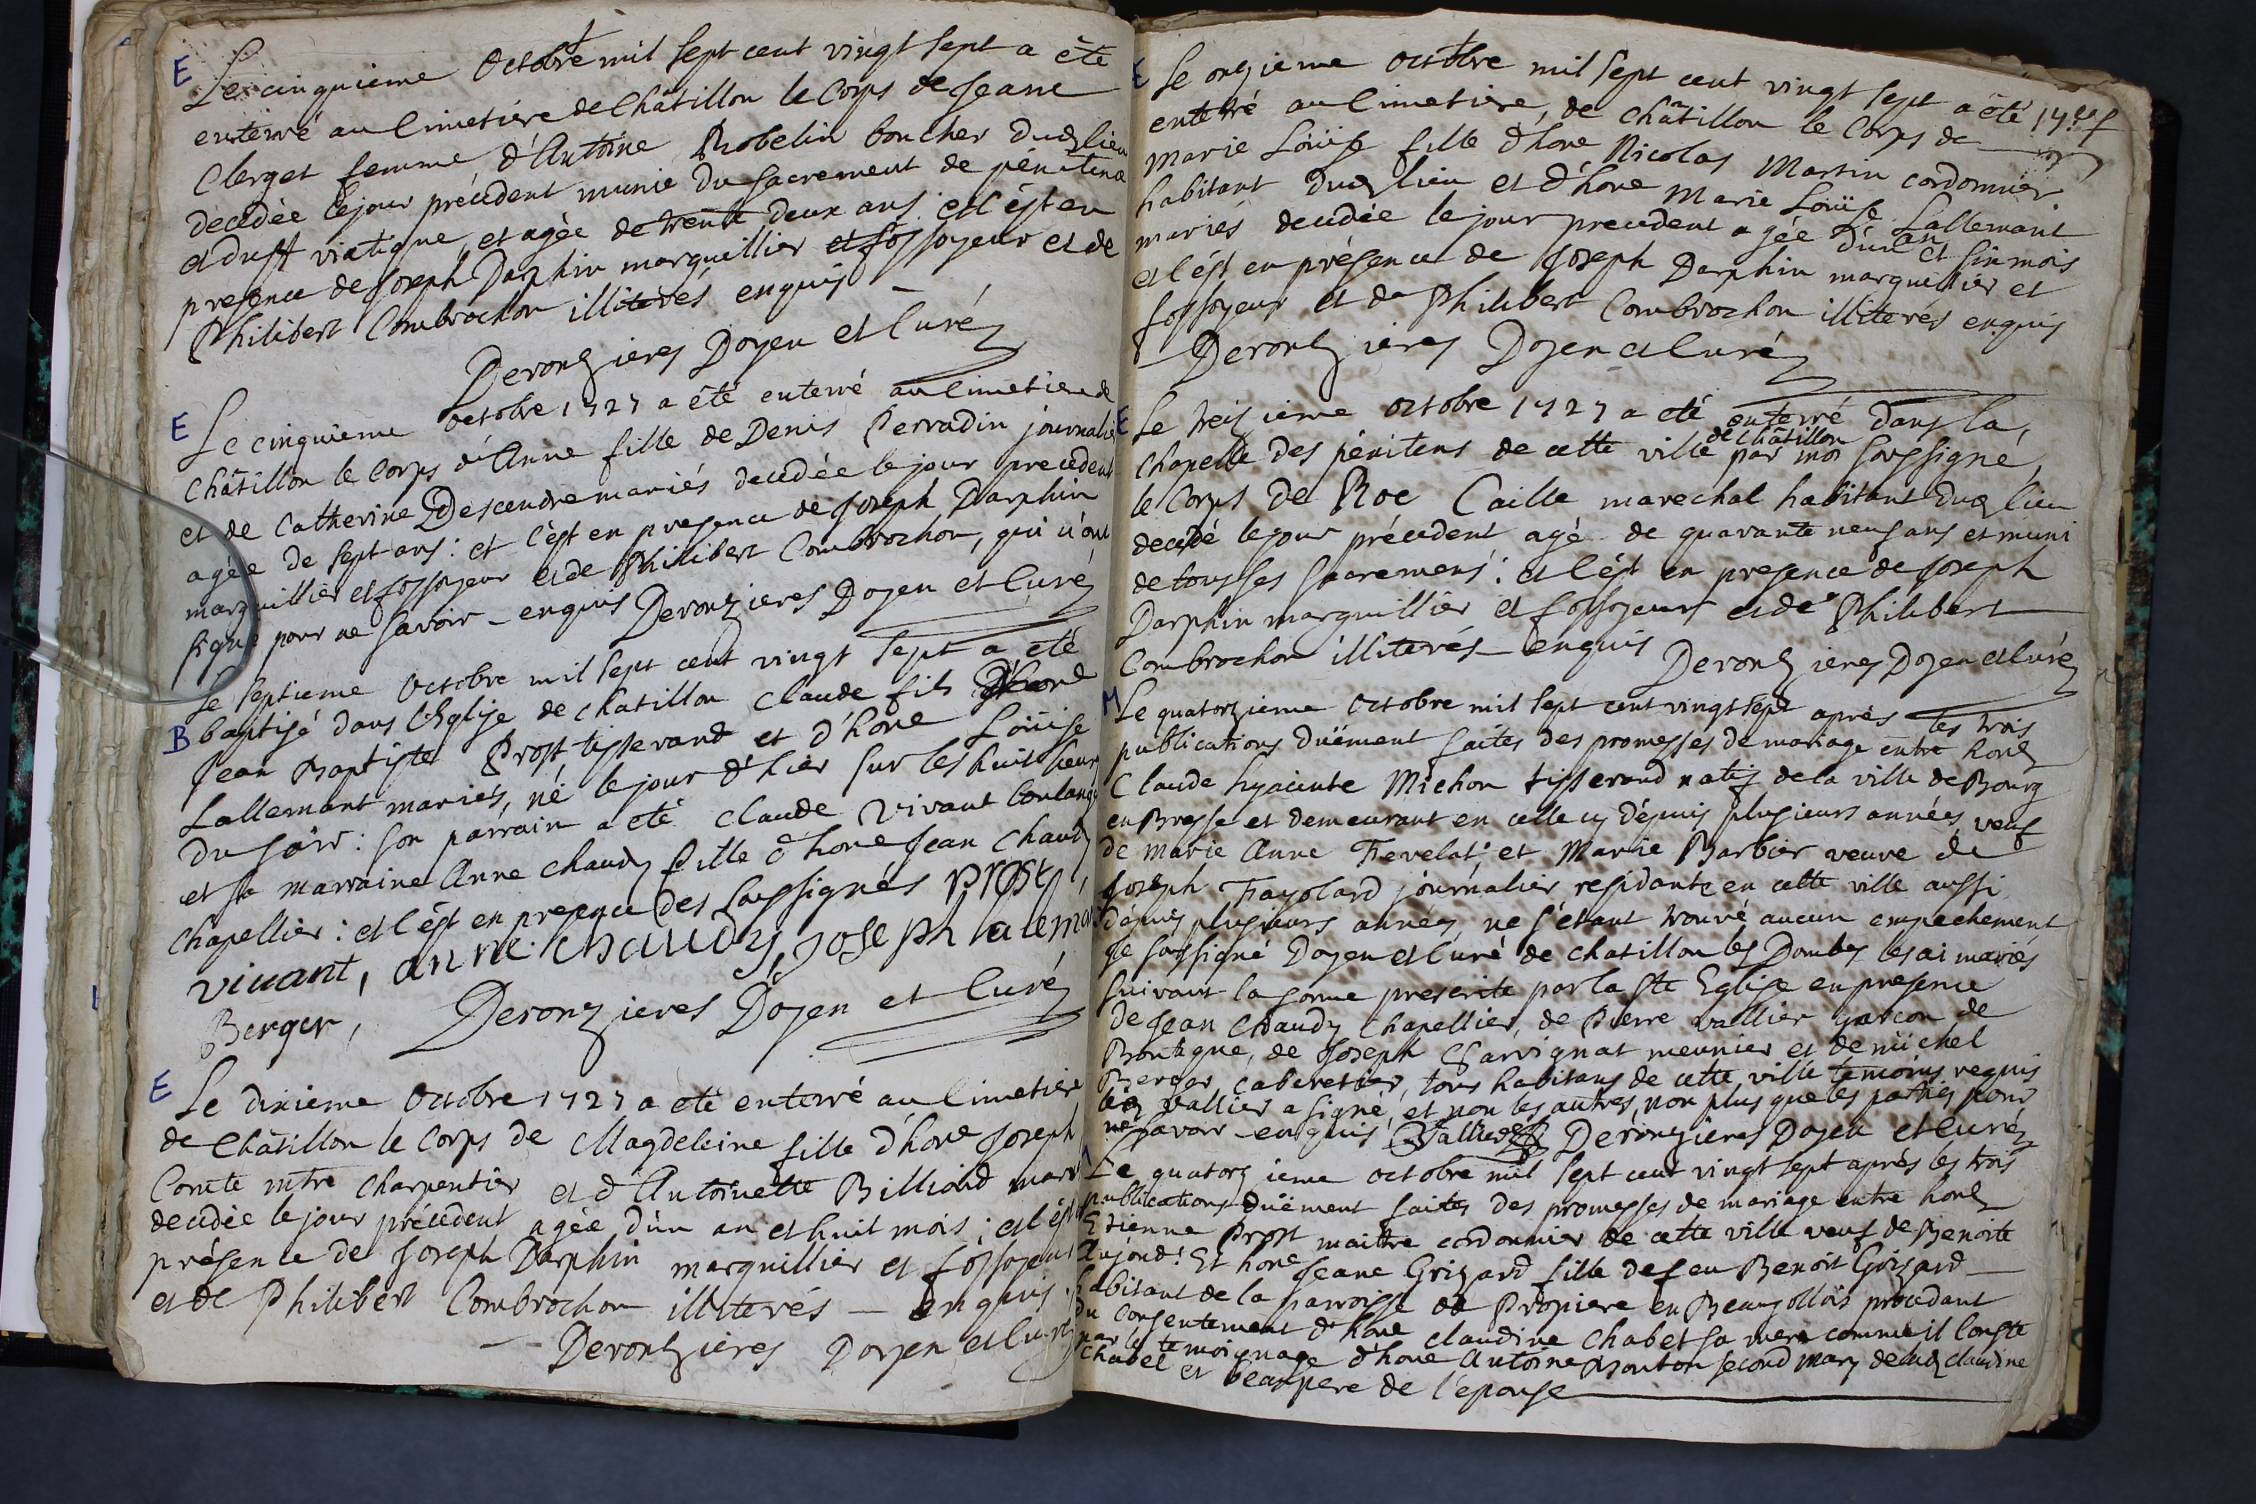 E Le cinquieme Octobre mil sept cent vingt sept a été
enterré au Cimetiére de Châtillon le Corps de Jeane
Clerget femme d'Antoine Robelin boucher dudlieu
decédée le jour précédent munie du Sacrement de pénitence
et du st viatique, et agée de trente deux ans. et c'ést en
presence de Joseph Darphin marguillier et fossoyeur et de
Philibert Combrochon illiterés enquis
Deronzieres Doyen et Curé
E Le cinquieme octobre 1727 a été enterré au Cimetiere de
Châtillon le Corps d'Anne fille de Denis Perradin journalier
et de Catherine Descendre mariés decédée le jour precedent
agée de sept ans : et c'ést en presence de Joseph Darphin
marguillier et fossoyeur et de Philibert Combrochon, qui n'ont
signé pour ne savoir - enquis Deronzieres Doyen et Curé
Le septieme Octobre mil sept cent vingt sept a été
B baptisé dans l'Eglise de chatillon Claude fils d'hone
Jean Baptiste Prost, tisserand et d'hone Loüise
Lallemant mariés, né le jour d'hier sur les huit heures
du soir : son parrain a été claude Vivant boulanger
et sa marraine Anne chaudy fille d'hone Jean Chaudy
chapellier : et c'ést en presence des soussignés prost
vivant, anne chaudy, Joseph laleman
Berger, Deronzieres Doyen et Curé
E Le dixieme Octobre 1727 a été enterré au Cimetiére
de Châtillon le Corps de Magdeleine fille d'hone Joseph
Comte mtre charpentier et d'Antoinette Billiond mariés
decédée le jour précédent agée d'un an et huit mois ; et c'ést en
présence de Joseph Darphin marguillier et fossoyeur
et de Philibert Combrochon illiterés - enquis
Deronzieres Doyen et Curé
E Le onzieme Octobre mil sept cent vingt sept a été
enterré au Cimetiére, de châtillon le Corps de
Marie Loüise fille d'hone Nicolas Martin cordonnier
habitant dudlieu et d'hone Marie Loüise Lallemant
mariés decédée le jour precedent agée d'un an et six mois
et c'ést en présence de Joseph Darphin marguillier et
fossoyeur et de Philibert Combrochon illiterés enquis
Deronzieres Doyen et Curé
E Le treizieme octobre 1727 a été enterré dans la
Chapelle des pénitens de cette ville de Châtillon par moi soussigné,
le Corps de Roc Caille marechal habitant dudlieu
decédé le jour précedent agé de quarante neuf ans et muni
de tous ses sacremens : et c'ést en presence de Joseph
Darphin marguillier et fossoyeur et de Philibert
Combrochon illiterés - enquis Deronzieres Doyen et Curé
M Le quatorzieme Octobre mil sept cent vingt sept aprés les trois
publications düement faites des promesses de mariage entre hone
Claude hyacinte Michon tisserand natif de la ville de Bourg
en Bresse et demeurant en celle cy depuis plusieurs années, veuf
de Marie Anne Fevelat ; et Marie Barbier veuve de
Joseph Fayolard journalier residante en cette ville aussi
depuis plusieurs années, ne s'étant trouvé aucun empechement
Je soussigné Doyen et Curé de chatillon les Dombes les ai mariés
suivant la forme prescrite par la ste Eglise en presence
de Jean Chaudy Chapellier, de Pierre Vallier garcon de
Boutique, de Joseph Charvignat meunier et de Michel
Berger, cabaretier, tous habitans de cette ville temoins requis
led Vallier a signé, et non les autres, non plus que les parties pour
ne savoir - enquis Vallier Deronzieres Doyen et Curé
Le quatorzieme octobre mil sept cent vingt sept aprés les trois
publications düement faites des promesses de mariage entre hone
Etienne Prost maitre cordonnier de cette ville veuf de Benoite
Et hone Jeane Grizard fille de feu Benoit Grizard
habitant de la parroisse de Propiere en Beaujollois procedant
du consentement d'hone claudine Chabet sa mere comme il conste
par le temoignage d'hone Antoine Mouton second mary de lad claudine
Chabet et beaupere de l'epouse